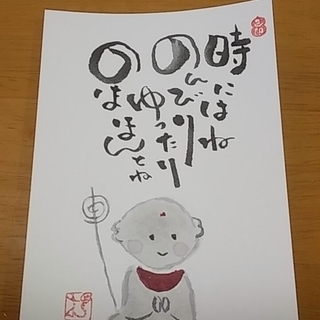 時にはね
のんびり
ゆったり
のほほんとね